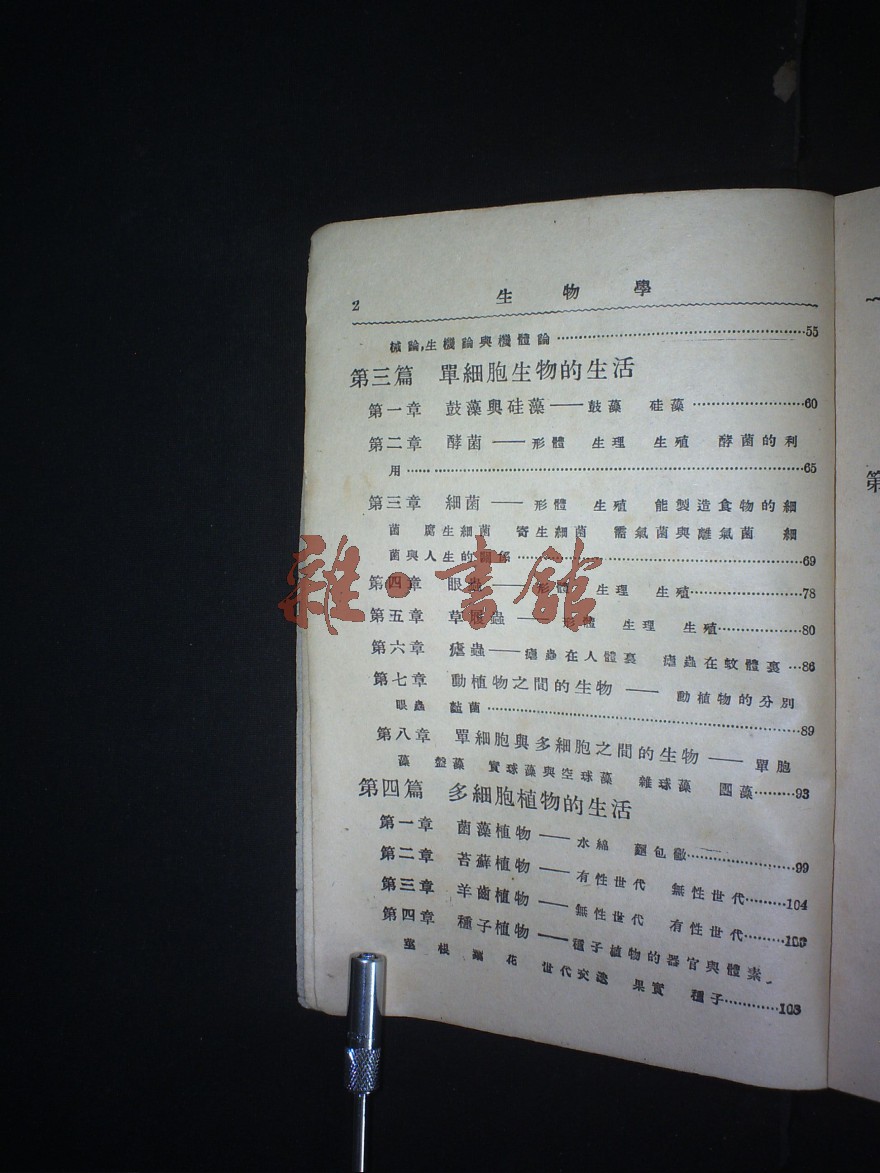 2 生物學
械論,生機論與機體論 55
第三篇 單細胞生物的生活
第一章 鼓藻與硅藻——鼓藻 硅藻 60
第二章 酵菌——形體 生理 生殖 酵菌的利
用 65
第三章 細菌——形體 生殖 能製造食物的細
菌 腐生細菌 寄生細菌 需氣菌與離氣菌 細
菌與人生的關係 69
第四章 眼蟲——形體 生理 生殖 78
第五章 草履蟲——形體 生理 生殖 80
第六章 瘧蟲——瘧蟲在人體裏 瘧蟲在蚊體裏 86
第七章 動植物之間的生物——動植物的分別
眼蟲 黏菌 89
第八章 單細胞與多細胞之間的生物——單胞
藻 盤藻 實球藻與空球藻 雜球藻 團藻 93
第四篇 多細胞植物的生活
第一章 菌藻植物——水綿 麵包黴 99
第二章 苔蘚植物——有性世代 無性世代 104
第三章 羊齒植物——無性世代 有性世代
第四章 種子植物——種子植物的器官與體素
莖 根 葉 花 世代交遞 果實 種子 108
雜·書館
第